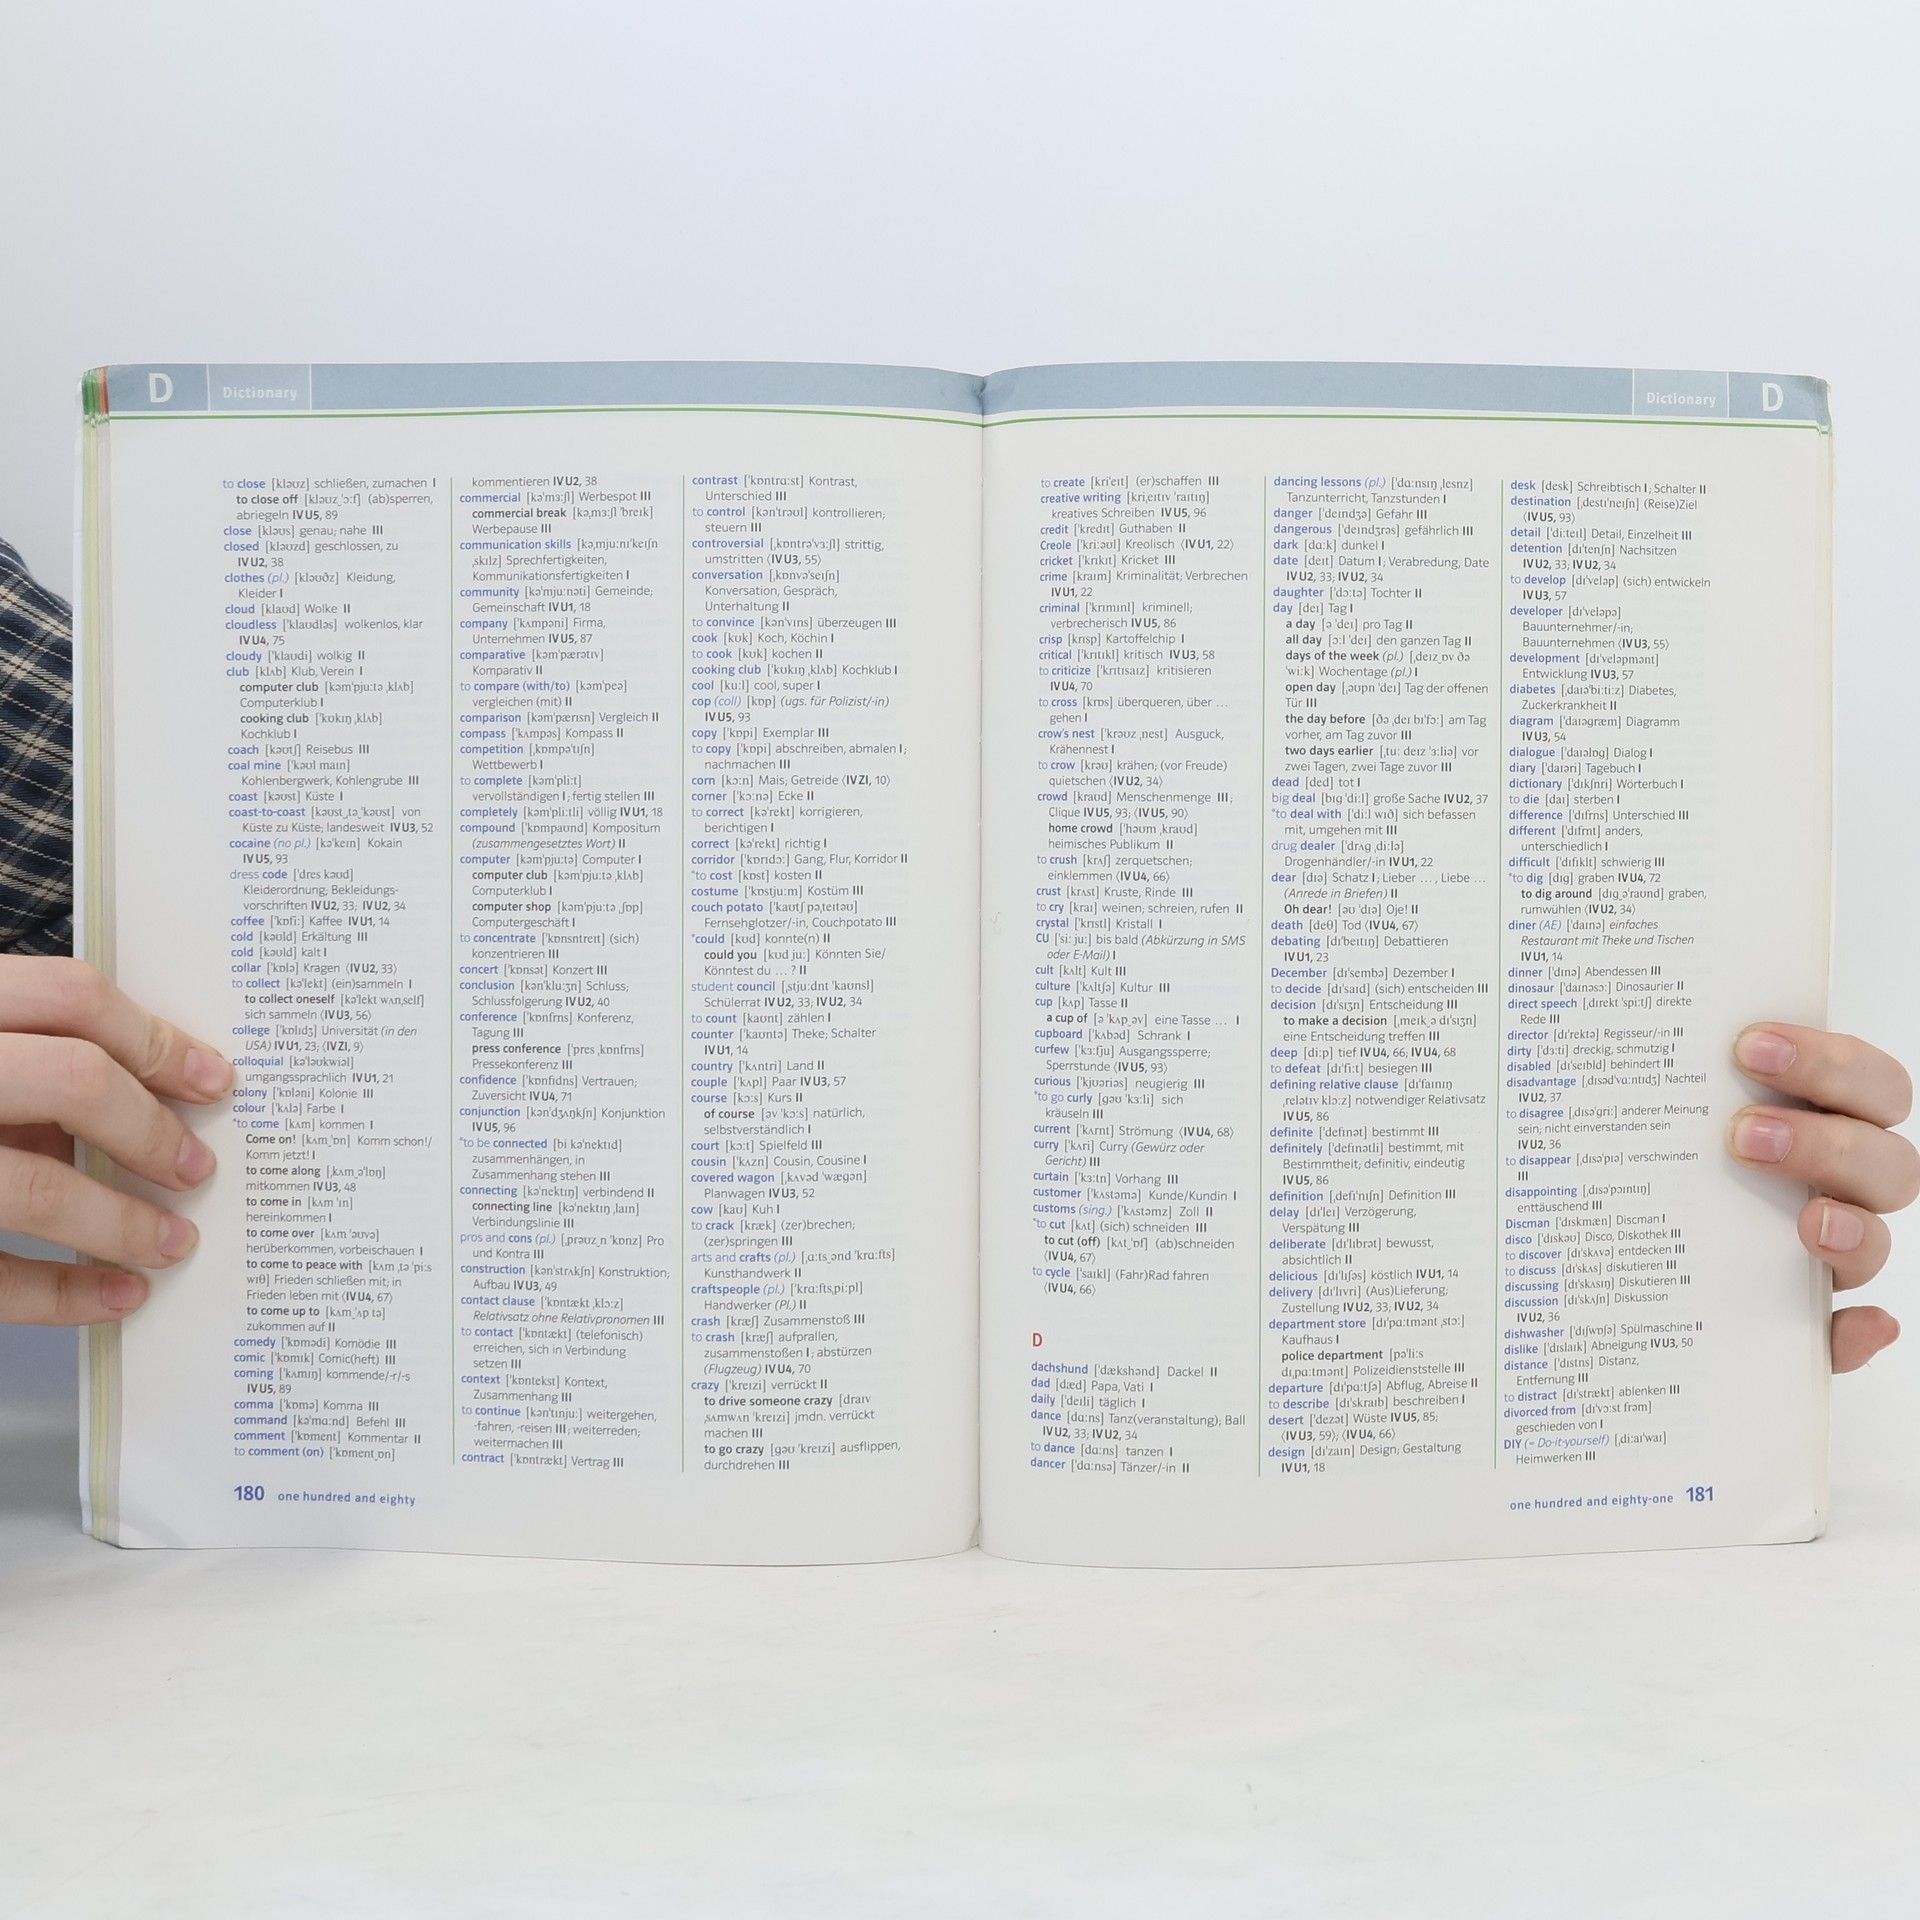 D Dictionary
to close [kləʊz] schließen, zumachen I
to close off [kləʊz ˌɔːf] (ab)sperren,
abriegeln IV U5, 89
close [kləʊs] genau; nahe III
closed [kləʊzd] geschlossen, zu
IV U2, 38
clothes (pl.) [kləʊðz] Kleidung,
Kleider I
cloud [klaʊd] Wolke II
cloudless [ˈklaʊdləs] wolkenlos, klar
IV U4, 75
cloudy [ˈklaʊdi] wolkig II
club [klʌb] Klub, Verein I
computer club [kəmˈpjuːtə ˌklʌb]
Computerklub I
cooking club [ˈkʊkɪŋ ˌklʌb]
Kochklub I
coach [kəʊtʃ] Reisebus III
coal mine [ˈkəʊl maɪn]
Kohlenbergwerk, Kohlengrube III
coast [kəʊst] Küste I
coast-to-coast [kəʊst ˌtə ˈkəʊst] von
Küste zu Küste; landesweit IV U3, 52
cocaine (no pl.) [kəˈkeɪn] Kokain
IV U5, 93
dress code [ˈdres kəʊd]
Kleiderordnung, Bekleidungs-
vorschriften IV U2, 33; IV U2, 34
coffee [ˈkɒfiː] Kaffee IV U1, 14
cold [kəʊld] Erkältung III
cold [kəʊld] kalt I
collar [ˈkɒlə] Kragen ⟨IV U2, 33⟩
to collect [kəˈlekt] (ein)sammeln I
to collect oneself [kəˈlekt wʌnˌself]
sich sammeln ⟨IV U3, 56⟩
college [ˈkɒlɪdʒ] Universität (in den
USA) IV U1, 23; ⟨IV ZI, 9⟩
colloquial [kəˈləʊkwiəl]
umgangssprachlich IV U1, 21
colony [ˈkɒləni] Kolonie III
colour [ˈkʌlə] Farbe I
*to come [kʌm] kommen I
Come on! [kʌm ˈɒn] Komm schon!/
Komm jetzt! I
to come along [ˌkʌm əˈlɒŋ]
mitkommen IV U3, 48
to come in [kʌm ˈɪn]
hereinkommen I
to come over [kʌm ˈəʊvə]
herüberkommen, vorbeischauen I
to come to peace with [kʌm ˌtə ˈpiːs
wɪθ] Frieden schließen mit; in
Frieden leben mit ⟨IV U4, 67⟩
to come up to [kʌm ˌʌp tə]
zukommen auf II
comedy [ˈkɒmədi] Komödie III
comic [ˈkɒmɪk] Comic(heft) III
coming [ˈkʌmɪŋ] kommende/-r/-s
IV U5, 89
comma [ˈkɒmə] Komma III
command [kəˈmɑːnd] Befehl III
comment [ˈkɒment] Kommentar II
to comment (on) [ˈkɒment ˌɒn]
kommentieren IV U2, 38
commercial [kəˈmɜːʃl] Werbespot III
commercial break [kəˌmɜːʃl ˈbreɪk]
Werbepause III
communication skills [kəˌmjuːnɪˈkeɪʃn
ˌskɪlz] Sprechfertigkeiten,
Kommunikationsfertigkeiten I
community [kəˈmjuːnəti] Gemeinde;
Gemeinschaft IV U1, 18
company [ˈkʌmpəni] Firma,
Unternehmen IV U5, 87
comparative [kəmˈpærətɪv]
Komparativ II
to compare (with/to) [kəmˈpeə]
vergleichen (mit) II
comparison [kəmˈpærɪsn] Vergleich II
compass [ˈkʌmpəs] Kompass II
competition [ˌkɒmpəˈtɪʃn]
Wettbewerb I
to complete [kəmˈpliːt]
vervollständigen I; fertig stellen III
completely [kəmˈpliːtli] völlig IV U1, 18
compound [ˈkɒmpaʊnd] Kompositum
(zusammengesetztes Wort) II
computer [kəmˈpjuːtə] Computer I
computer club [kəmˈpjuːtə ˌklʌb]
Computerklub I
computer shop [kəmˈpjuːtə ˌʃɒp]
Computergeschäft I
to concentrate [ˈkɒnsntreɪt] (sich)
konzentrieren III
concert [ˈkɒnsət] Konzert III
conclusion [kənˈkluːʒn] Schluss;
Schlussfolgerung IV U2, 40
conference [ˈkɒnfrns] Konferenz,
Tagung III
press conference [ˈpres ˌkɒnfrns]
Pressekonferenz III
confidence [ˈkɒnfɪdns] Vertrauen;
Zuversicht IV U4, 71
conjunction [kənˈdʒʌŋkʃn] Konjunktion
IV U5, 96
*to be connected [bi kəˈnektɪd]
zusammenhängen, in
Zusammenhang stehen III
connecting [kəˈnektɪŋ] verbindend II
connecting line [kəˈnektɪŋ ˌlaɪn]
Verbindungslinie III
pros and cons (pl.) [ˌprəʊz ˌn ˈkɒnz] Pro
und Kontra III
construction [kənˈstrʌkʃn] Konstruktion;
Aufbau IV U3, 49
contact clause [ˈkɒntækt ˌklɔːz]
Relativsatz ohne Relativpronomen III
to contact [ˈkɒntækt] (telefonisch)
erreichen, sich in Verbindung
setzen III
context [ˈkɒntekst] Kontext,
Zusammenhang III
to continue [kənˈtɪnjuː] weitergehen,
-fahren, -reisen III; weiterreden;
weitermachen III
contract [ˈkɒntrækt] Vertrag III
contrast [ˈkɒntrɑːst] Kontrast,
Unterschied III
to control [kənˈtrəʊl] kontrollieren;
steuern III
controversial [ˌkɒntrəˈvɜːʃl] strittig,
umstritten ⟨IV U3, 55⟩
conversation [ˌkɒnvəˈseɪʃn]
Konversation, Gespräch,
Unterhaltung II
to convince [kənˈvɪns] überzeugen III
cook [kʊk] Koch, Köchin I
to cook [kʊk] kochen II
cooking club [ˈkʊkɪŋ ˌklʌb] Kochklub I
cool [kuːl] cool, super I
cop (coll) [kɒp] (ugs. für Polizist/-in)
IV U5, 93
copy [ˈkɒpi] Exemplar III
to copy [ˈkɒpi] abschreiben, abmalen I;
nachmachen III
corn [kɔːn] Mais; Getreide ⟨IV ZI, 10⟩
corner [ˈkɔːnə] Ecke II
to correct [kəˈrekt] korrigieren,
berichtigen I
correct [kəˈrekt] richtig I
corridor [ˈkɒrɪdɔː] Gang, Flur, Korridor II
*to cost [kɒst] kosten II
costume [ˈkɒstjuːm] Kostüm III
couch potato [ˈkaʊtʃ pəˌteɪtəʊ]
Fernsehglotzer/-in, Couchpotato III
*could [kʊd] konnte(n) II
could you [kʊd juː] Könnten Sie/
Könntest du … ? II
student council [ˌstjuːdnt ˈkaʊnsl]
Schülerrat IV U2, 33; IV U2, 34
to count [kaʊnt] zählen I
counter [ˈkaʊntə] Theke; Schalter
IV U1, 14
country [ˈkʌntri] Land II
couple [ˈkʌpl] Paar IV U3, 57
course [kɔːs] Kurs II
of course [əv ˈkɔːs] natürlich,
selbstverständlich I
court [kɔːt] Spielfeld III
cousin [ˈkʌzn] Cousin, Cousine I
covered wagon [ˌkʌvəd ˈwægən]
Planwagen IV U3, 52
cow [kaʊ] Kuh I
to crack [kræk] (zer)brechen;
(zer)springen III
arts and crafts (pl.) [ˌɑːts ˌənd ˈkrɑːfts]
Kunsthandwerk II
craftspeople (pl.) [ˈkrɑːftsˌpiːpl]
Handwerker (Pl.) II
crash [kræʃ] Zusammenstoß III
to crash [kræʃ] aufprallen,
zusammenstoßen I; abstürzen
(Flugzeug) IV U4, 70
crazy [ˈkreɪzi] verrückt II
to drive someone crazy [draɪv
ˌsʌmwʌn ˈkreɪzi] jmdn. verrückt
machen III
to go crazy [gəʊ ˈkreɪzi] ausflippen,
durchdrehen III
180 one hundred and eighty
Dictionary D
to create [kriˈeɪt] (er)schaffen III
creative writing [kriˌeɪtɪv ˈraɪtɪŋ]
kreatives Schreiben IV U5, 96
credit [ˈkredɪt] Guthaben II
Creole [ˈkriːəʊl] Kreolisch ⟨IV U1, 22⟩
cricket [ˈkrɪkɪt] Kricket III
crime [kraɪm] Kriminalität; Verbrechen
IV U1, 22
criminal [ˈkrɪmɪnl] kriminell;
verbrecherisch IV U5, 86
crisp [krɪsp] Kartoffelchip I
critical [ˈkrɪtɪkl] kritisch IV U3, 58
to criticize [ˈkrɪtɪsaɪz] kritisieren
IV U4, 70
to cross [krɒs] überqueren, über …
gehen I
crow's nest [ˈkrəʊz ˌnest] Ausguck,
Krähennest I
to crow [krəʊ] krähen; (vor Freude)
quietschen ⟨IV U2, 34⟩
crowd [kraʊd] Menschenmenge III;
Clique IV U5, 93; ⟨IV U5, 90⟩
home crowd [ˈhəʊm ˌkraʊd]
heimisches Publikum II
to crush [krʌʃ] zerquetschen;
einklemmen ⟨IV U4, 66⟩
crust [krʌst] Kruste, Rinde III
to cry [kraɪ] weinen; schreien, rufen II
crystal [ˈkrɪstl] Kristall I
CU [ˈsiː juː] bis bald (Abkürzung in SMS
oder E-Mail) I
cult [kʌlt] Kult III
culture [ˈkʌltʃə] Kultur III
cup [kʌp] Tasse II
a cup of [ə ˈkʌp ˌəv] eine Tasse … I
cupboard [ˈkʌbəd] Schrank I
curfew [ˈkɜːfjuː] Ausgangssperre;
Sperrstunde ⟨IV U5, 93⟩
curious [ˈkjʊəriəs] neugierig III
*to go curly [gəʊ ˈkɜːli] sich
kräuseln III
current [ˈkʌrnt] Strömung ⟨IV U4, 68⟩
curry [ˈkʌri] Curry (Gewürz oder
Gericht) III
curtain [ˈkɜːtn] Vorhang III
customer [ˈkʌstəmə] Kunde/Kundin I
customs (sing.) [ˈkʌstəmz] Zoll II
*to cut [kʌt] (sich) schneiden III
to cut (off) [kʌt ˌˈɒf] (ab)schneiden
⟨IV U4, 67⟩
to cycle [ˈsaɪkl] (Fahr)Rad fahren
⟨IV U4, 66⟩
D
dachshund [ˈdækshənd] Dackel II
dad [dæd] Papa, Vati I
daily [ˈdeɪli] täglich I
dance [dɑːns] Tanz(veranstaltung); Ball
IV U2, 33; IV U2, 34
to dance [dɑːns] tanzen I
dancer [ˈdɑːnsə] Tänzer/-in II
dancing lessons (pl.) [ˈdɑːnsɪŋ ˌlesnz]
Tanzunterricht, Tanzstunden I
danger [ˈdeɪndʒə] Gefahr III
dangerous [ˈdeɪndʒrəs] gefährlich III
dark [dɑːk] dunkel I
date [deɪt] Datum I; Verabredung, Date
IV U2, 33; IV U2, 34
daughter [ˈdɔːtə] Tochter II
day [deɪ] Tag I
a day [ə ˈdeɪ] pro Tag II
all day [ɔːl ˈdeɪ] den ganzen Tag II
days of the week (pl.) [ˌdeɪz ˌɒv ðə
ˈwiːk] Wochentage (pl.) I
open day [ˌəʊpn ˈdeɪ] Tag der offenen
Tür III
the day before [ðə ˌdeɪ bɪˈfɔː] am Tag
vorher, am Tag zuvor III
two days earlier [ˌtuː deɪz ˈɜːliə] vor
zwei Tagen, zwei Tage zuvor III
dead [ded] tot I
big deal [bɪg ˈdiːl] große Sache IV U2, 37
*to deal with [ˈdiːl wɪð] sich befassen
mit, umgehen mit III
drug dealer [ˈdrʌg ˌdiːlə]
Drogenhändler/-in IV U1, 22
dear [dɪə] Schatz I; Lieber … , Liebe …
(Anrede in Briefen) II
Oh dear! [əʊ ˈdɪə] Oje! II
death [deθ] Tod ⟨IV U4, 67⟩
debating [dɪˈbeɪtɪŋ] Debattieren
IV U1, 23
December [dɪˈsembə] Dezember I
to decide [dɪˈsaɪd] (sich) entscheiden III
decision [dɪˈsɪʒn] Entscheidung III
to make a decision [ˌmeɪk ˌə dɪˈsɪʒn]
eine Entscheidung treffen III
deep [diːp] tief IV U4, 66; IV U4, 68
to defeat [dɪˈfiːt] besiegen III
defining relative clause [dɪˈfaɪnɪŋ
ˌrelətɪv klɔːz] notwendiger Relativsatz
IV U5, 86
definite [ˈdefɪnət] bestimmt III
definitely [ˈdefɪnətli] bestimmt, mit
Bestimmtheit; definitiv, eindeutig
IV U5, 86
definition [ˌdefɪˈnɪʃn] Definition III
delay [dɪˈleɪ] Verzögerung,
Verspätung III
deliberate [dɪˈlɪbrət] bewusst,
absichtlich II
delicious [dɪˈlɪʃəs] köstlich IV U1, 14
delivery [dɪˈlɪvri] (Aus)Lieferung;
Zustellung IV U2, 33; IV U2, 34
department store [dɪˈpɑːtmənt ˌstɔː]
Kaufhaus I
police department [pəˈliːs
dɪˌpɑːtmənt] Polizeidienststelle III
departure [dɪˈpɑːtʃə] Abflug, Abreise II
to describe [dɪˈskraɪb] beschreiben I
desert [ˈdezət] Wüste IV U5, 85;
⟨IV U3, 59⟩; ⟨IV U4, 66⟩
design [dɪˈzaɪn] Design; Gestaltung
IV U1, 18
desk [desk] Schreibtisch I; Schalter II
destination [ˌdestɪˈneɪʃn] (Reise)Ziel
⟨IV U5, 93⟩
detail [ˈdiːteɪl] Detail, Einzelheit III
detention [dɪˈtenʃn] Nachsitzen
IV U2, 33; IV U2, 34
to develop [dɪˈveləp] (sich) entwickeln
IV U3, 57
developer [dɪˈveləpə]
Bauunternehmer/-in;
Bauunternehmen ⟨IV U3, 55⟩
development [dɪˈveləpmənt]
Entwicklung IV U3, 57
diabetes [ˌdaɪəˈbiːtiːz] Diabetes,
Zuckerkrankheit II
diagram [ˈdaɪəgræm] Diagramm
IV U3, 54
dialogue [ˈdaɪəlɒg] Dialog I
diary [ˈdaɪəri] Tagebuch I
dictionary [ˈdɪkʃnri] Wörterbuch I
to die [daɪ] sterben I
difference [ˈdɪfrns] Unterschied III
different [ˈdɪfrnt] anders,
unterschiedlich I
difficult [ˈdɪfɪklt] schwierig III
*to dig [dɪg] graben IV U4, 72
to dig around [dɪg ˌəˈraʊnd] graben,
rumwühlen ⟨IV U2, 34⟩
diner (AE) [ˈdaɪnə] einfaches
Restaurant mit Theke und Tischen
IV U1, 14
dinner [ˈdɪnə] Abendessen III
dinosaur [ˈdaɪnəsɔː] Dinosaurier II
direct speech [ˌdɪrekt ˈspiːtʃ] direkte
Rede III
director [dɪˈrektə] Regisseur/-in III
dirty [ˈdɜːti] dreckig, schmutzig I
disabled [dɪˈseɪbld] behindert III
disadvantage [ˌdɪsədˈvɑːntɪdʒ] Nachteil
IV U2, 37
to disagree [ˌdɪsəˈgriː] anderer Meinung
sein; nicht einverstanden sein
IV U2, 36
to disappear [ˌdɪsəˈpɪə] verschwinden
III
disappointing [ˌdɪsəˈpɔɪntɪŋ]
enttäuschend III
Discman [ˈdɪskmæn] Discman I
disco [ˈdɪskəʊ] Disco, Diskothek III
to discover [dɪˈskʌvə] entdecken III
to discuss [dɪˈskʌs] diskutieren III
discussing [dɪˈskʌsɪŋ] Diskutieren III
discussion [dɪˈskʌʃn] Diskussion
IV U2, 36
dishwasher [ˈdɪʃwɒʃə] Spülmaschine II
dislike [ˈdɪslaɪk] Abneigung IV U3, 50
distance [ˈdɪstns] Distanz,
Entfernung III
to distract [dɪˈstrækt] ablenken III
divorced from [dɪˈvɔːst frəm]
geschieden von I
DIY (= Do-it-yourself) [ˌdiːaɪˈwaɪ]
Heimwerken III
one hundred and eighty-one 181